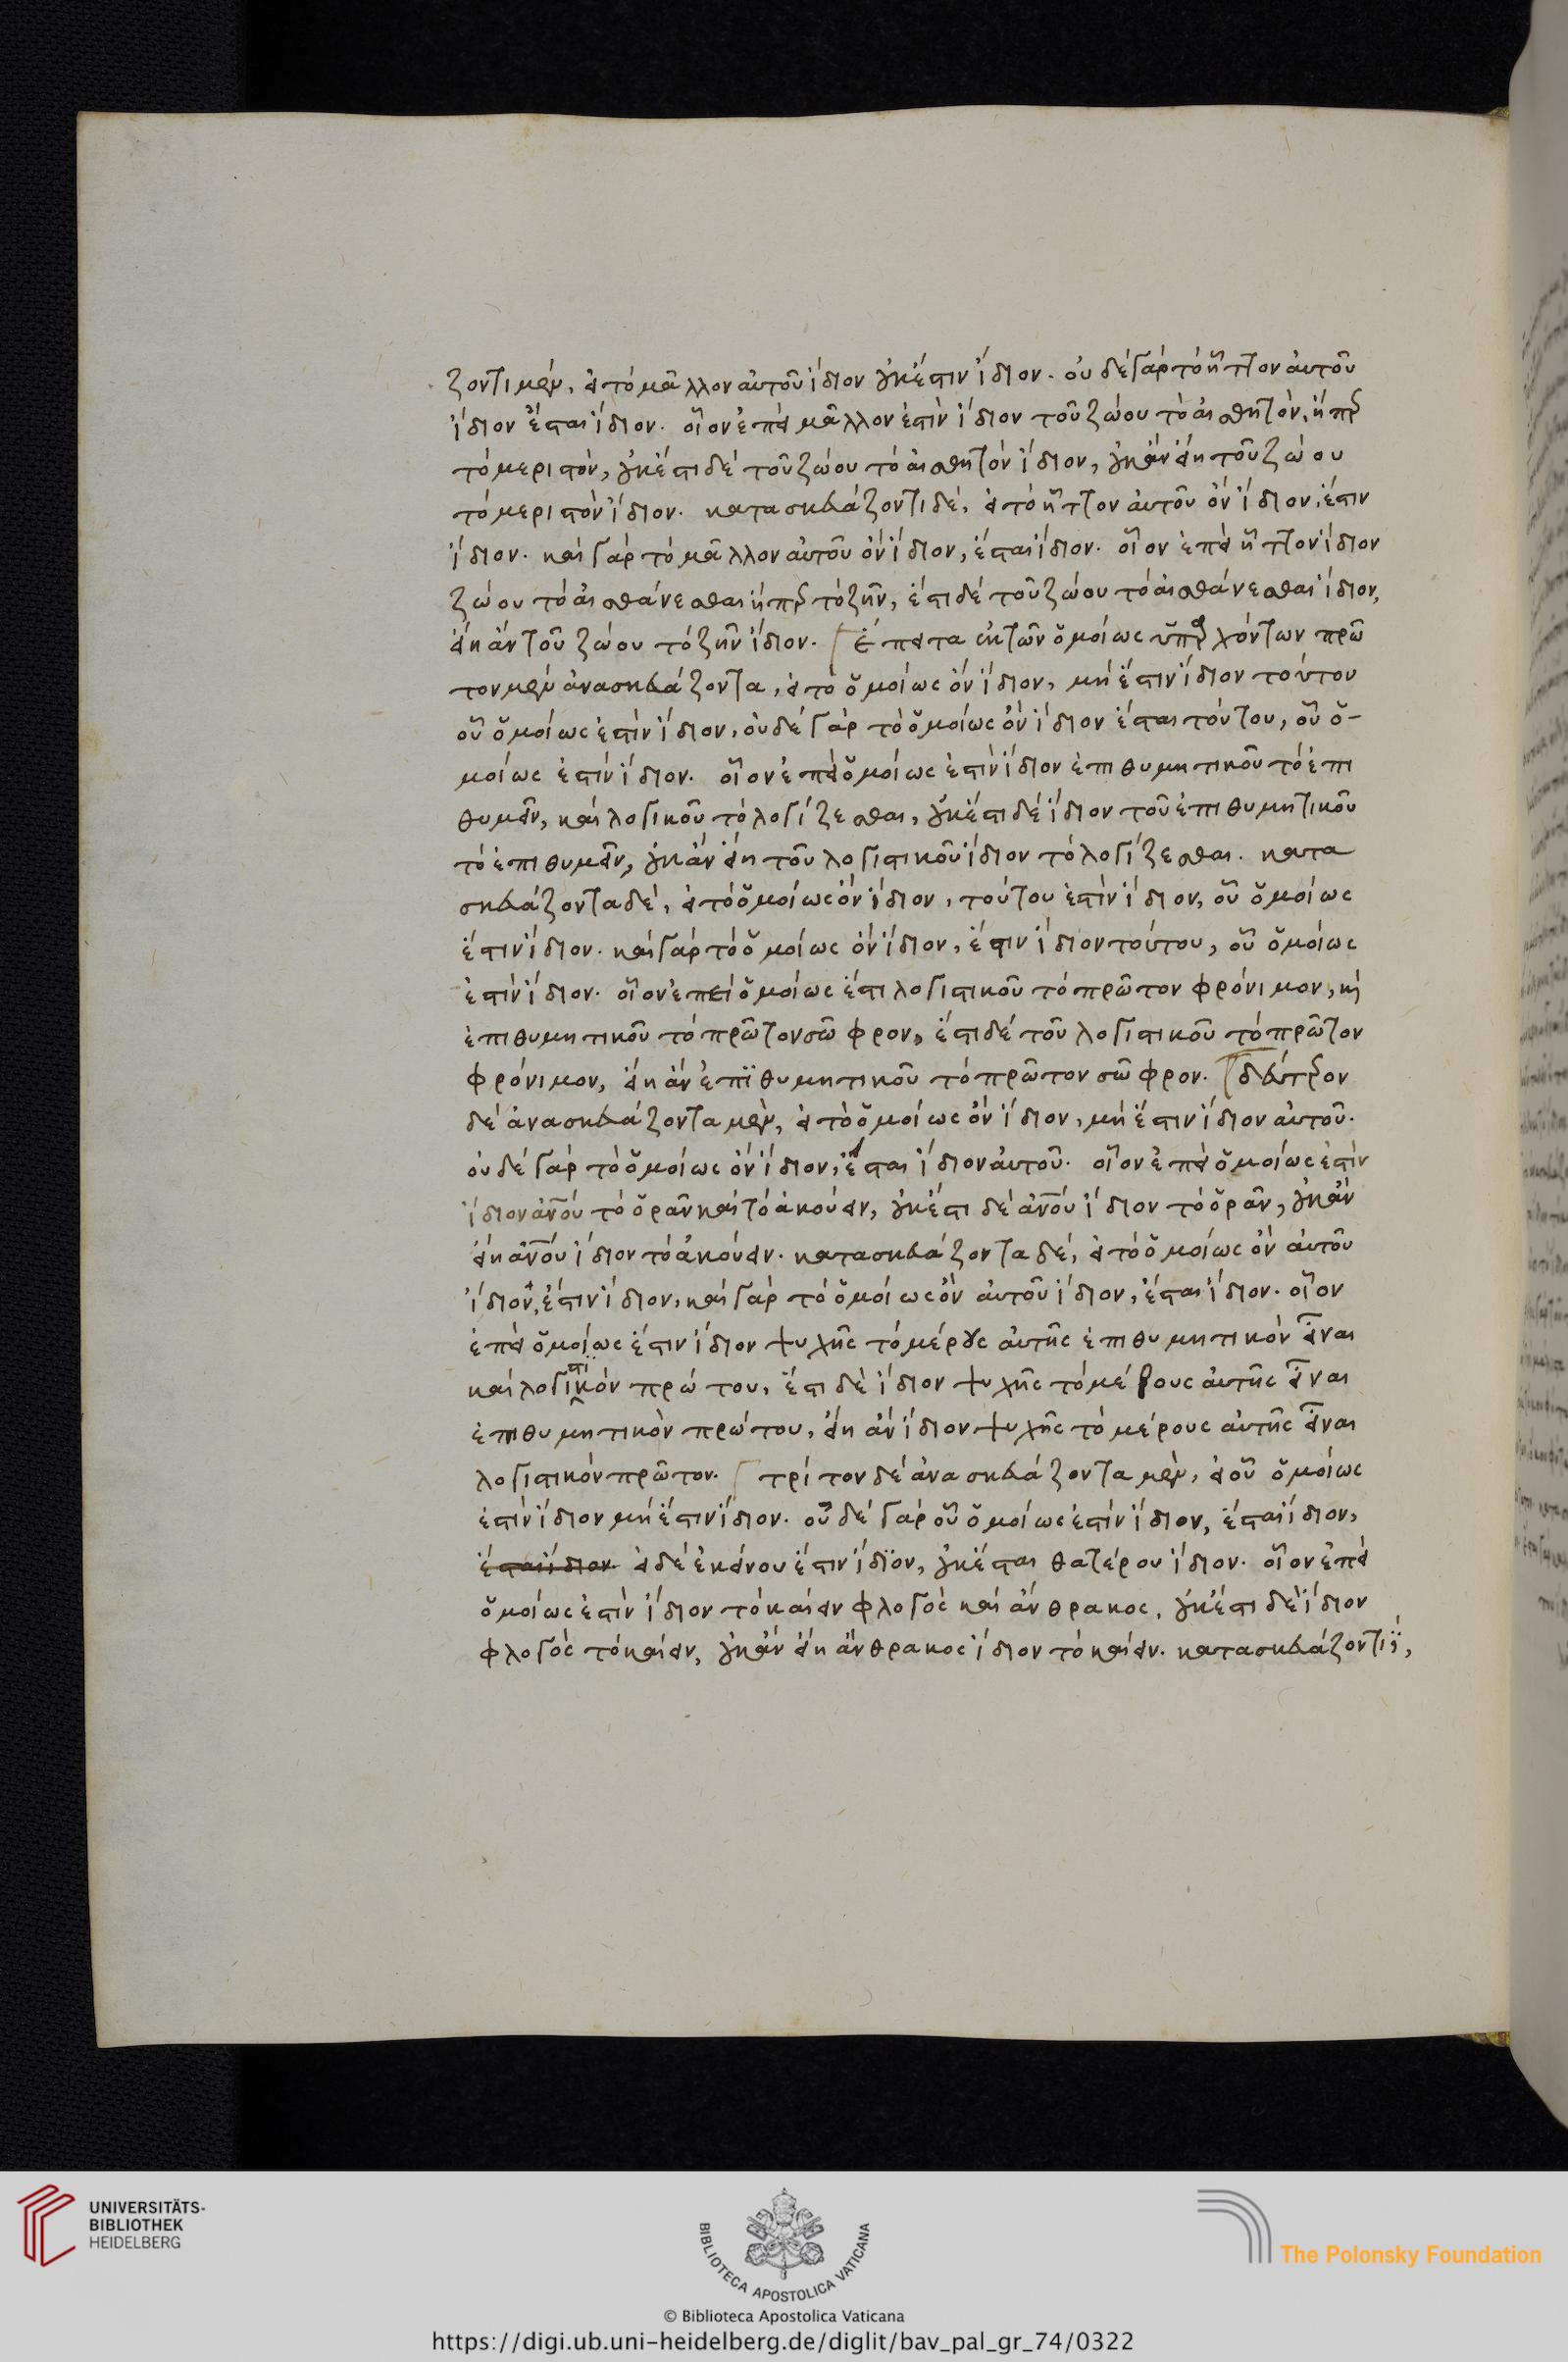 ζοντι μὲν, εἰ τὸ μᾶλλον αὐτοῦ ἴδιον οὐκ ἔστιν ἴδιον. οὐδὲ γὰρ τὸ ἧττον αὐτοῦ
ἴδιον ἔσται ἴδιον. οἷον ἐπεὶ μᾶλλον ἐστὶν ἴδιον τοῦ ζώου τὸ αἰσθητὸν, ἤπερ
τὸ μεριστὸν, οὐκ ἔστι δὲ τοῦ ζώου τὸ αἰσθητὸν ἴδιον, οὐκ ἂν εἴη τοῦ ζώου
τὸ μεριστὸν ἴδιον. κατασκευάζοντι δὲ, εἰ τὸ ἧττον αὐτοῦ ὂν ἴδιον, ἔστιν
ἴδιον. καὶ γὰρ τὸ μᾶλλον αὐτοῦ ὂν ἴδιον, ἔσται ἴδιον. οἷον ἐπεὶ ἧττον ἴδιον
ζώου τὸ αἰσθάνεσθαι ἤπερ τὸ ζῆν, ἔστι δὲ τοῦ ζώου τὸ αἰσθάνεσθαι ἴδιον,
εἴη ἂν τοῦ ζώου τὸ ζῆν ἴδιον. ἔπειτα ἐκ τῶν ὁμοίως ὑπαρχόντων πρῶ
τον μὲν ἀνασκευάζοντα, εἰ τὸ ὁμοίως ὂν ἴδιον, μὴ ἔστιν ἴδιον τούτου
οὗ ὁμοίως ἐστὶν ἴδιον, οὐδὲ γὰρ τὸ ὁμοίως ὂν ἴδιον ἔσται τούτου, οὗ ὁ-
μοίως ἐστὶν ἴδιον. οἷον ἐπεὶ ὁμοίως ἐστὶν ἴδιον ἐπιθυμητικοῦ τὸ ἐπι
θυμεῖν, καὶ λογικοῦ τὸ λογίζεσθαι, οὐκ ἔστι δὲ ἴδιον τοῦ ἐπιθυμητικοῦ
τὸ ἐπιθυμεῖν, οὐκ ἂν εἴη τοῦ λογιστικοῦ ἴδιον τὸ λογίζεσθαι. κατα
σκευάζοντα δὲ, εἰ τὸ ὁμοίως ὂν ἴδιον, τούτου ἐστὶν ἴδιον, οὗ ὁμοίως
ἔστιν ἴδιον. καὶ γὰρ τὸ ὁμοίως ὂν ἴδιον, ἔστιν ἴδιον τούτου, οὗ ὁμοίως
ἐστὶν ἴδιον. οἷον ἐπεὶ ὁμοίως ἔστι λογιστικοῦ τὸ πρῶτον φρόνιμον, καὶ
ἐπιθυμητικοῦ τὸ πρῶτον σῶφρον, ἔστι δὲ τοῦ λογιστικοῦ τὸ πρῶτον
φρόνιμον, εἴη ἂν ἐπϊθυμητικοῦ τὸ πρῶτον σῶφρον. δεύτερον
δὲ ἀνασκευάζοντα μὲν, εἰ τὸ ὁμοίως ὂν ἴδιον, μὴ ἔστιν ἴδιον αὐτοῦ.
οὐδὲ γὰρ τὸ ὁμοίως ὂν ἴδιον, ἔσται ἴδιον αὐτοῦ. οἷον ἐπεὶ ὁμοίως ἐστὶν
ἴδιον ἀνου τὸ ὁρᾶν καὶ τὸ ἀκούειν, οὐκ ἔστι δὲ ἀνου ἴδιον τὸ ὁρᾶν, οὐκ ἂν
εἴη ἀνου ἴδιον τὸ ἀκούειν. κατασκευάζοντα δὲ, εἰ τὸ ὁμοίως ὂν αὐτοῦ
ἴδιον, ἔστιν ἴδιον, καὶ γὰρ τὸ ὁμοίως ὂν αὐτοῦ ἴδιον, ἔσται ἴδιον. οἷον
ἐπεὶ ὁμοίως ἔστιν ἴδιον ψυχῆς τὸ μέρους αὐτῆς ἐπιθυμητικὸν εἶναι
καὶ λογιστικὸν πρώτου, ἔστι δὲ ἴδιον ψυχῆς τὸ μέρους αὐτῆς εἶναι
ἐπιθυμητικὸν πρώτου, εἴη ἂν ἴδιον ψυχῆς τὸ μέρους αὐτῆς εἶναι
λογιστικὸν πρῶτον. τρίτον δὲ ἀνασκευάζοντα μὲν, εἰ οὗ ὁμοίως
ἐστὶν ἴδιον μὴ ἔστιν ἴδιον. οὐδὲ γὰρ οὗ ὁμοίως ἐστὶν ἴδιον, ἔσται ἴδιον,
ἔσται ἴδιον εἰ δὲ ἐκείνου ἔστιν ἴδϊον, οὐκ ἔσται θατέρου ἴδιον. οἷον ἐπεὶ
ὁμοίως ἐστὶν ἴδιον τὸ καίειν φλογὸς καὶ ἄνθρακος, οὐκ ἔστι δὲ ἴδιον
φλογὸς τὸ καίειν, οὐκ ἂν εἴη ἄνθρακος ἴδιον τὸ καίειν. κατασκευάζοντι,
UNIVERSITÄTS-
BIBLIOTHEK
HEIDELBERG
BIBLIOTECA APOSTOLICA VATICANA
The Polonsky Foundation
© Biblioteca Apostolica Vaticana
https://digi.ub.uni-heidelberg.de/diglit/bav_pal_gr_74/0322